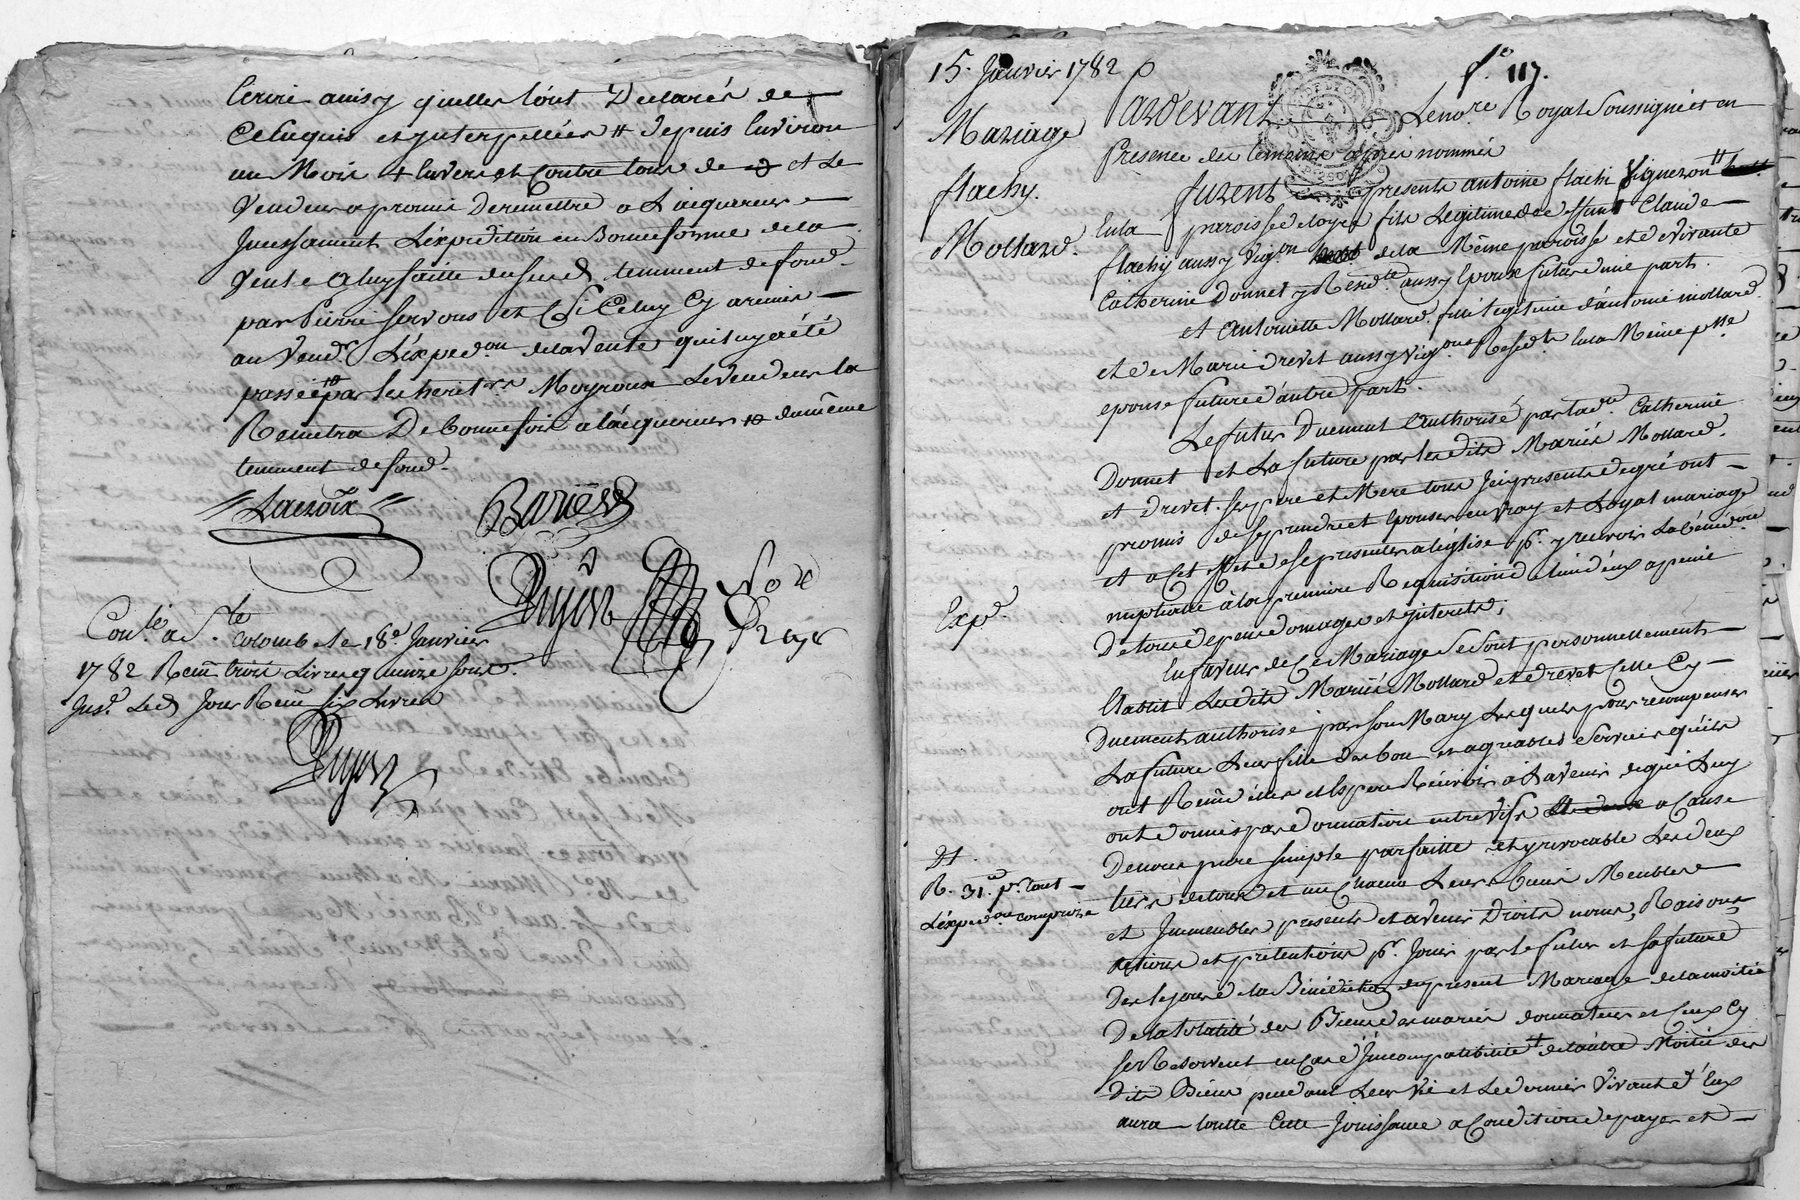 Ecrire ainsy quelles l'ont Declarés de
Cefuquis et ynterpellées # depuis Environ
un Mois + Envers et Contre tous de et Le
Vendeur a promis De remettre a L'acquereur
Incessament L'éxpedition en Bonne forme de la
Vente a luy faitte du susd. tenment de fond
par Pierre Servous et Celuy Cy a remis
au Vendr. L'éxpedon. de la Vente qui luy a été
passée par les heritrs. Moyroux Le Vendeur la
Remettra De bonne foix a l'acquereur # du même
tenment de fond.
Lacroix
Dujon
Conlé. a Ste. Colombe le 18e Janvier
1782 Reçu trois Livres quinze sous.
Ins. Led. Jour Reçu six Livres
Dujon
15. Janvier 1782
fo. 117.
Mariage
flachy.
Mollard.
Expd.
Et.
R. 31 pr. tout
L'éxpedon. comprize
Pardevant Le nore. Royal Soussigné et en
Presence des temoins apres nommés
furent presents antoine flachi Vigneron #
En la paroisse de loyes fils Legitime de deffunt Claude
flachy aussy Vigon. de la Même paroisse et de vivante
Catherine Donnet y Reside. aussy Epoux futur d'une part.
et Antoinette Mollard. fille legitime d'antoine mollard
et de Marie drevet aussy vigons. Residts. en la Même psse.
epouse future d'autre part.
Le futur Duement authorisé par lade. Catherine
Donnet et La future par lesdits Mariés Mollard.
et Drevet. ses pere et Mere tous Icy presents de gré ont
promis de se prendre et Epouser en vray et Loyal mariage
et a Cet effet de se presenter a leglise pr. y recevoir La bénédon.
nuptialle à la premiere Requisition de l'un d'eux a peine
De tous depens domages et ynterets;
En faveur de Ce Mariage Se Sont personnellement
Etablit Lesdits Mariés Mollard et drevet Celle Cy
Duement authorisé par Son Mary Lesquels pour recompenser
La future Leur fille des bon et agreables Services qu'ils
ont Reçu d'elles et Espere Recevoir à L'avenir de gré Luy
ont donnés par donnation entre vifs a Cause
De noces pure Simple parfaitte et yrevocable Les deux
tiers de tous et un Chacun Leurs biens Meubles
et Immeubles presents et avenir Droits noms, Raisons
actions et pretentions pr. Jouir par le futur et sa future
Des le jour de la Bénédiction du present Mariage de la moitié
De la totalité des Biens des mariés donnateurs et Ceux Cy
se Reservent en Cas d'Incompatibilité + de l'autre Moitié des
dits Biens pendant Leur Vie et Le dernier Vivant d'Eux
aura toutte Cette Jouissance a Condition de payer et